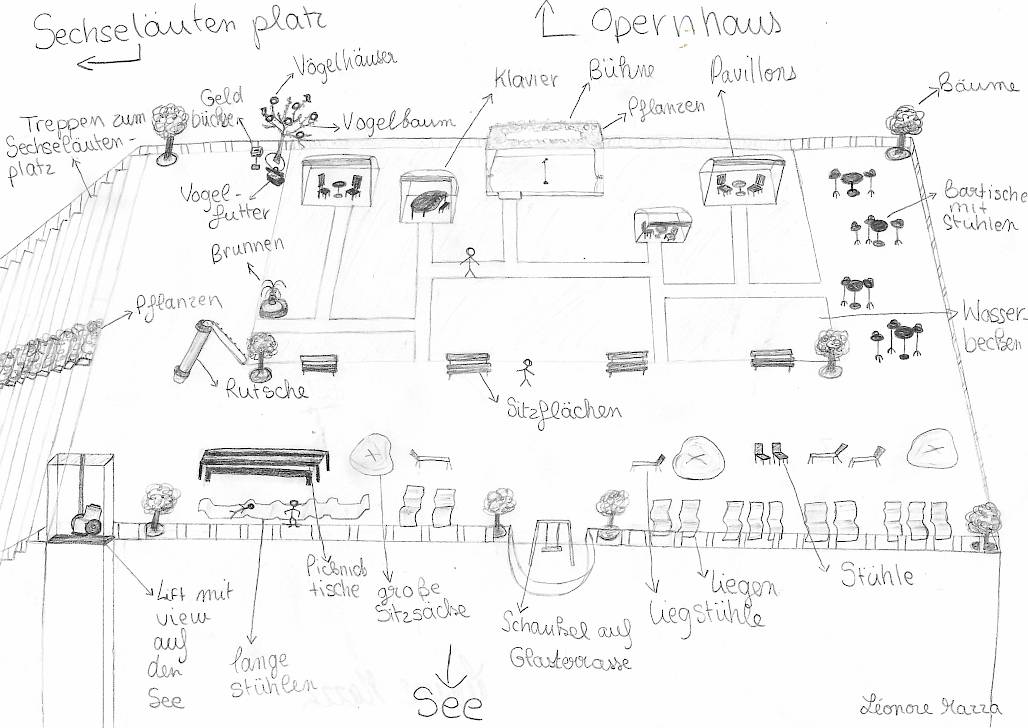 Sechseläuten platz
Opernhaus
Vögelhäuser
Klavier
Bühne
Pavillons
Bäume
Geld
büchse
Pflanzen
Treppen zum
Sechseläuten-
platz
Vogelbaum
Vogel-
futter
Bartische
mit
Stühlen
Brunnen
Pflanzen
Wasser-
becken
Rutsche
Sitzflächen
Lift mit
view
auf
den
See
Picknick
tische
große
Sitzsäcke
Liegen
Liegstühle
Stühle
Schaukel auf
Glasterrasse
lange
Stühlen
See
Léonore Mazza